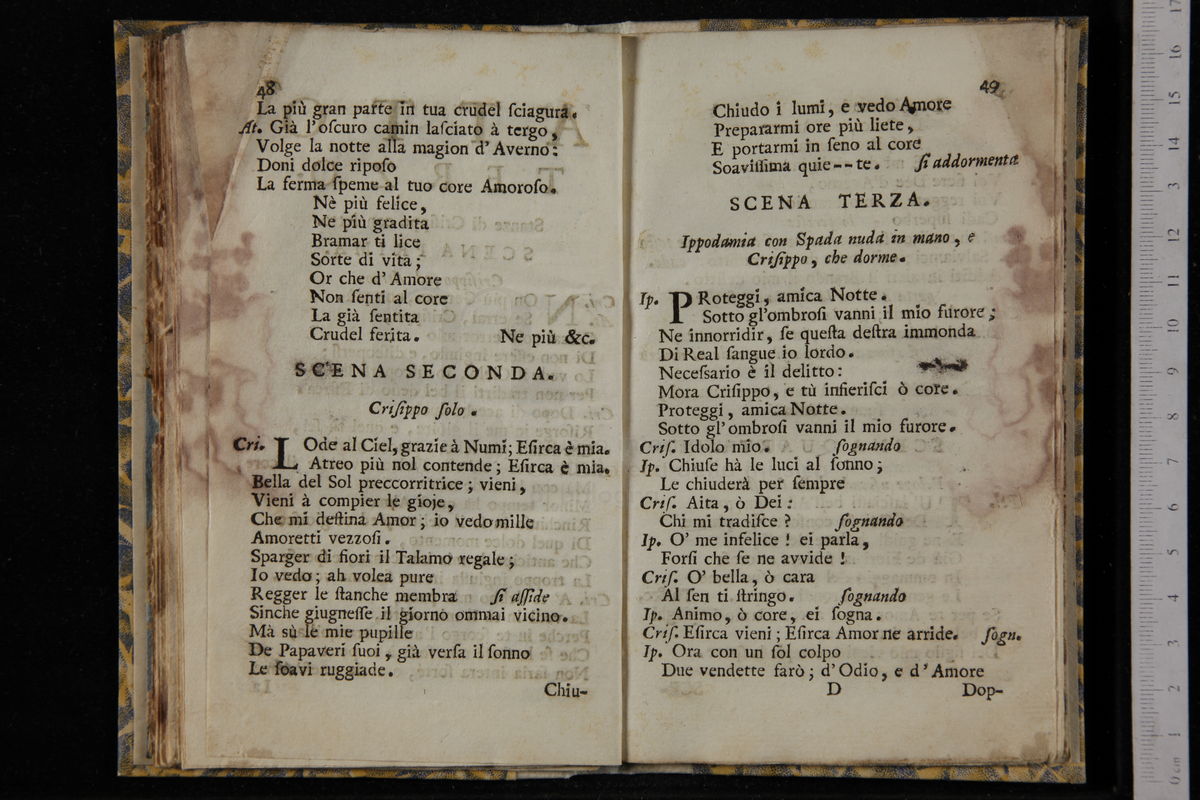 48
La più gran parte in tua crudel ſciagura.
At. Già l'oſcuro camin laſciato à tergo,
Volge la notte alla magion d'Averno:
Doni dolce ripoſo
La ferma ſpeme al tuo core Amoroſo.
Nè più felice,
Ne più gradita
Bramar ti lice
Sorte di vita;
Or che d'Amore
Non ſenti al core
La già ſentita
Crudel ferita. Ne più &c.
SCENA SECONDA.
Criſippo ſolo.
Cri. LOde al Ciel, grazie à Numi; Eſirca è mia.
Atreo più nol contende; Eſirca è mia.
Bella del Sol preccorritrice; vieni,
Vieni à compier le gioje,
Che mi deſtina Amor; io vedo mille
Amoretti vezzoſi.
Sparger di fiori il Talamo regale;
Io vedo; ah volea pure
Regger le ſtanche membra ſi aſſide
Sinche giugneſſe il giorno ommai vicino.
Mà sù le mie pupille
De Papaveri ſuoi, già verſa il ſonno
Le ſoavi ruggiade.
Chiu-
49
Chiudo i lumi, e vedo Amore
Prepararmi ore più liete,
E portarmi in ſeno al core
Soaviſſima quie--te. ſi addormenta
SCENA TERZA.
Ippodamia con Spada nuda in mano, e
Criſippo, che dorme.
Ip. PRoteggi, amica Notte.
Sotto gl'ombroſi vanni il mio furore;
Ne innorridir, ſe queſta deſtra immonda
Di Real ſangue io lordo.
Neceſsario è il delitto:
Mora Criſippo, e tù inſieriſci ò core.
Proteggi, amica Notte.
Sotto gl'ombroſi vanni il mio furore.
Criſ. Idolo mio. ſognando
Ip. Chiuſe hà le luci al ſonno;
Le chiuderà per ſempre
Criſ. Aita, ò Dei:
Chi mi tradiſce? ſognando
Ip. O' me infelice! ei parla,
Forſi che ſe ne avvide!
Criſ. O' bella, ò cara
Al ſen ti ſtringo. ſognando
Ip. Animo, ò core, ei ſogna.
Criſ. Eſirca vieni; Eſirca Amor ne arride. ſogn.
Ip. Ora con un ſol colpo
Due vendette farò; d'Odio, e d'Amore
D Dop-